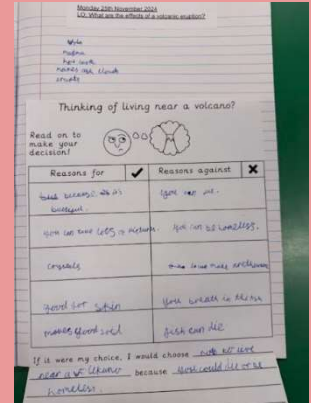 Monday 25th November 2024
LO: What are the effects of a volcanic eruption?
magma
hot
makes ash clouds
erupts
Thinking of living near a volcano?
Read on to
make your
decision!
Reasons for
Reasons against
because it is
you can die.
you can take lots of picture.
you can be homeless.
crystals
make
good for skin
you breath in the
makes good soil
fish can die
If it were my choice, I would choose not to live
near a because you could die or be
homeless.